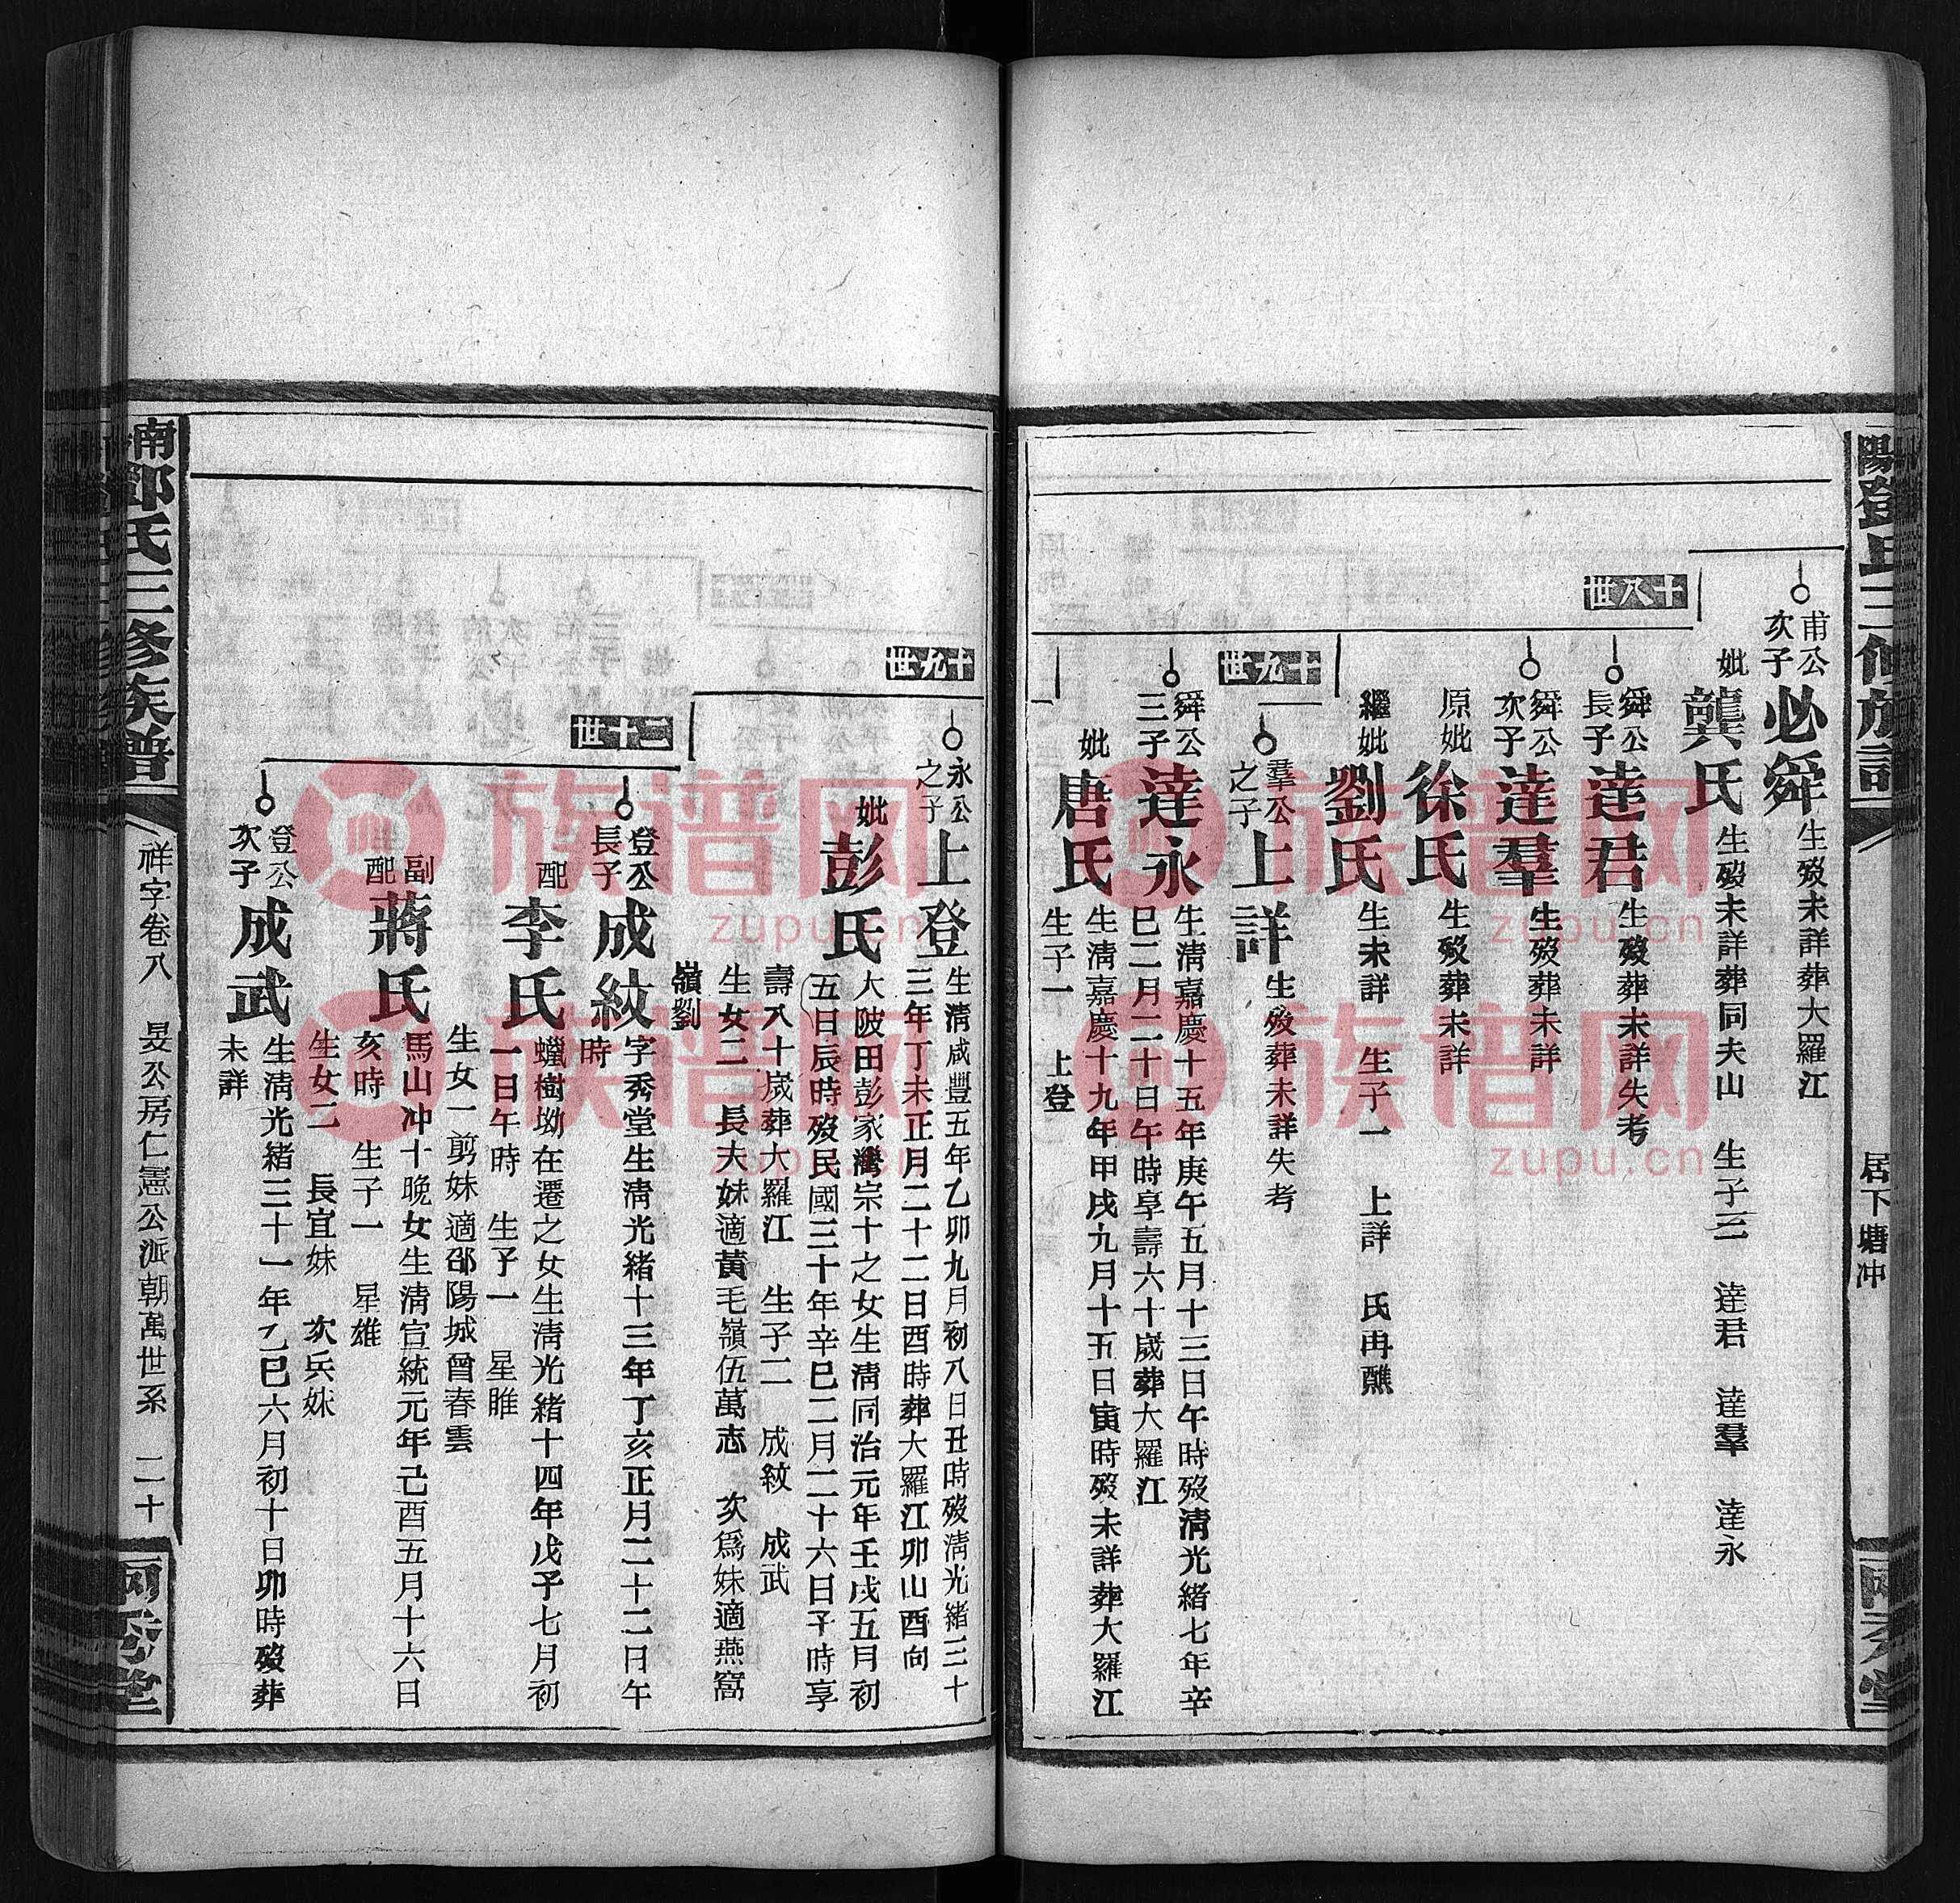 陽鄧氏三修族譜
居下塘冲
甫公次子 必舜 生歿未詳葬大羅江
妣 龔氏 生歿未詳葬同夫山 生子三 達君 達羣 達永
十八世
舜公長子 達君 生歿葬未詳失考
舜公次子 達羣 生歿葬未詳
原妣 徐氏 生歿葬未詳
繼妣 劉氏 生未詳 生子一 上詳 氏再醮
十九世
羣公之子 上詳 生歿葬未詳失考
舜公三子 達永 生淸嘉慶十五年庚午五月十三日午時歿淸光緒七年辛
巳二月二十日午時享壽六十歲葬大羅江
妣 唐氏 生淸嘉慶十九年甲戌九月十五日寅時歿未詳葬大羅江
生子一 上登
十九世
永公之子 上登 生淸咸豐五年乙卯九月初八日丑時歿淸光緒三十
三年丁未正月二十二日酉時葬大羅江卯山酉向
妣 彭氏 大陂田彭家灣宗十之女生淸同治元年壬戌五月初
五日辰時歿民國三十年辛巳二月二十六日子時享
壽八十歲葬大羅江 生子二 成紋 成武
生女二 長夫妹適黃毛嶺伍萬志 次爲妹適燕窩
嶺劉
二十世
登公長子 成紋 字秀堂生淸光緒十三年丁亥正月二十二日午
時
配 李氏 蠟樹坳在遷之女生淸光緒十四年戊子七月初
一日午時 生子一 星睢
生女一剪妹適邵陽城曾春雲
副配 蔣氏 馬山冲十晚女生淸宣統元年己酉五月十六日
亥時 生子一 星雄
生女二 長宜妹 次兵妹
登公次子 成武 生淸光緒三十一年乙巳六月初十日卯時歿葬
未詳
南 鄧氏三修族譜
祥字卷八 旻公房仁憲公派朝萬世系 二十
兩秀堂
族谱网
zupu.cn
族谱网
zupu.cn
族谱网
zupu.cn
族谱网
zupu.cn